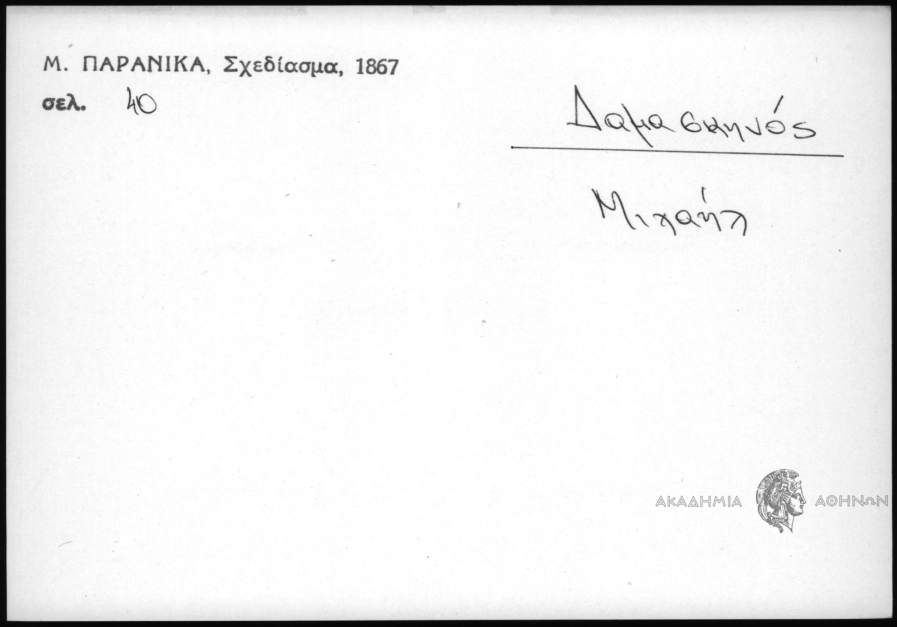 Μ. ΠΑΡΑΝΙΚΑ, Σχεδίασμα, 1867
σελ. 40
Δαμασκηνός
Μιχαήλ
ΑΚΑΔΗΜΙΑ ΑΘΗΝΩΝ